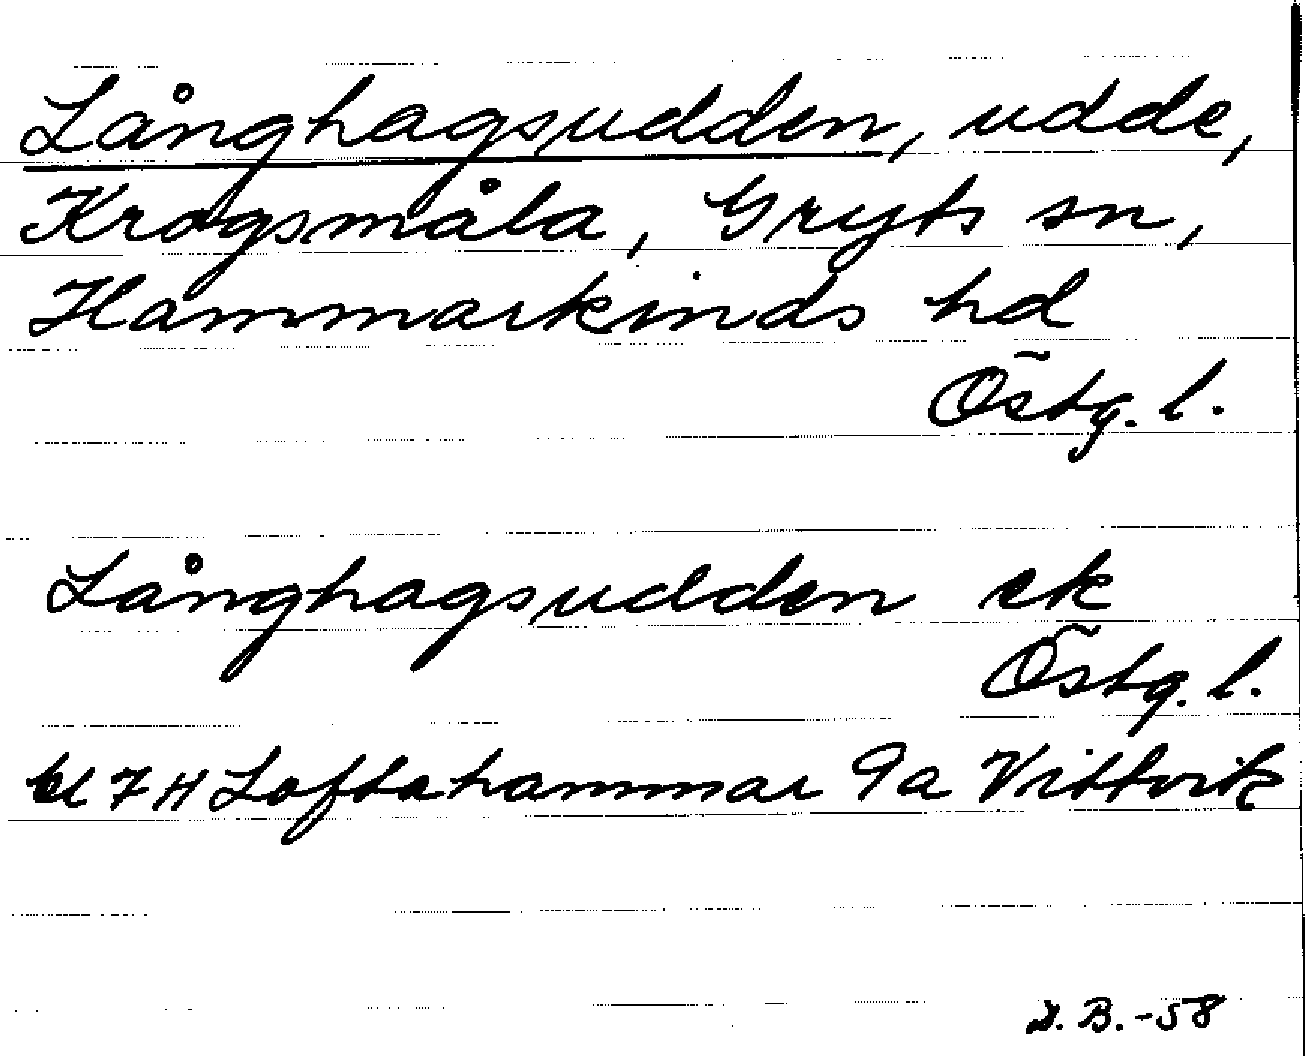 Långhagsudden, udde,
Krogsmåla, Gryts sn,
Hammarkinds hd
Östg. l.
Långhagsudden ek
Östg. l.
bl 7H Loftahammar 9a Vittvik
D. B. -58